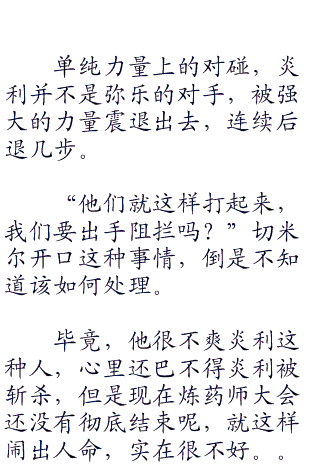 单纯力量上的对碰，炎
利并不是弥乐的对手，被强
大的力量震退出去，连续后
退几步。
“他们就这样打起来，
我们要出手阻拦吗？”切米
尔开口这种事情，倒是不知
道该如何处理。
毕竟，他很不爽炎利这
种人，心里还巴不得炎利被
斩杀，但是现在炼药师大会
还没有彻底结束呢，就这样
闹出人命，实在很不好。。